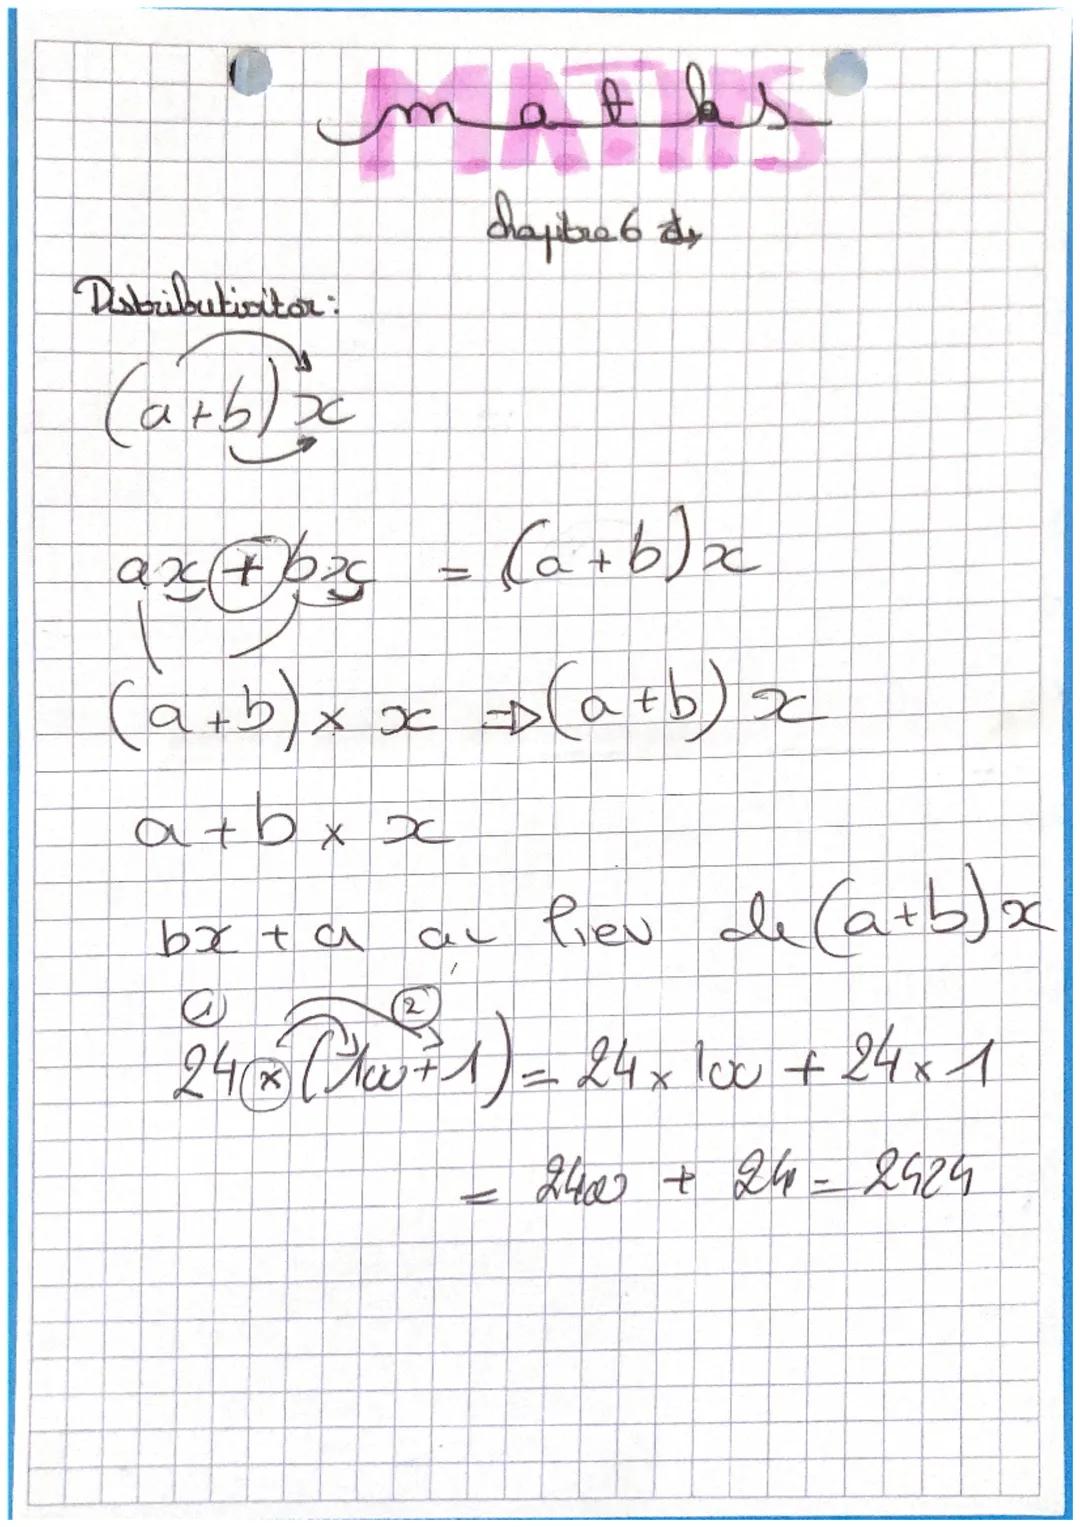 MATHS
maths
chapitre 6
Distributivitar:
(a+b)x
ax+bx = (a+b)x
(a+b)× x ⇒(a+b) x
a+b× x
bx + a au lieu de (a+b)x
1 2
24×(100+1)= 24× 100 + 24×1
= 2400 + 24 = 2424